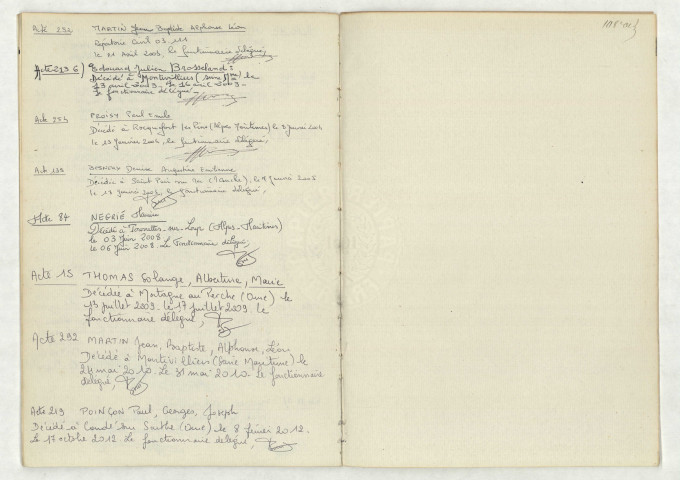 Acte 292 MARTIN Jean Baptiste Alphonse Léon
Répertoire Civil 03
le 21 Août 2003, le fonctionnaire délégué,
Acte 213 6) Edouard Julien Brosseland :
Décédé à Montivilliers (Seine Mme) le
13 avril 2003 - Le 16 avril 2003 -
Le fonctionnaire délégué -
Acte 254 FROISY Paul Emile
Décédé à Roquefort les Pins (Alpes Maritimes) le 3 janvier
le 13 janvier 2004, le fonctionnaire délégué,
Acte 139 Denise Augustine
Décédée à Saint (Manche), le janvier 2005
le 13 janvier le fonctionnaire délégué,
Acte 84 NEGRIÉ
Décédé à Tourrettes-sur-Loup (Alpes-Maritimes)
le 03 Juin 2008
le 06 Juin 2008 Le Fonctionnaire délégué,
Acte 15 THOMAS Solange, Albertine, Marie
Décédée à Mortagne au Perche (Orne) le
13 juillet 2009. le 17 juillet 2009 le
fonctionnaire délégué,
Acte 292 MARTIN Jean, Baptiste, Alphonse, Léon
Décédé à Montivilliers (Seine Maritime) le
24 mai 2010. Le 31 mai 2010. le fonctionnaire
délégué,
Acte 219 POINÇON Paul, Georges, Joseph
Décédé à Condé sur Sarthe (Orne) le 8 février 2012.
le 17 octobre 2012 le fonctionnaire délégué,